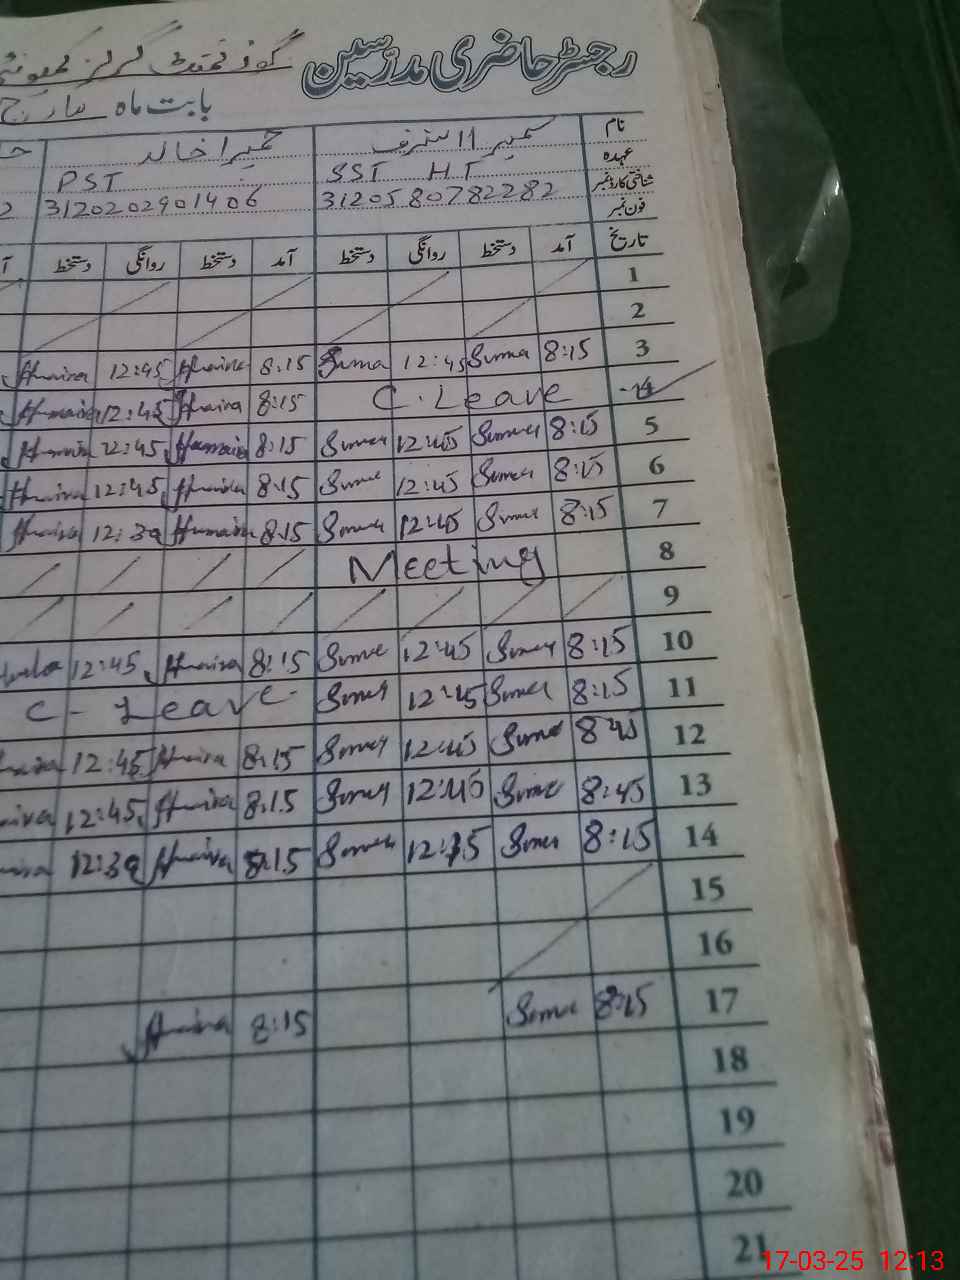 رجسٹر حاضری مدرسین گورنمنٹ گرلز کمیونٹی
بابت ماہ مارچ
نام سمیرا اشرف حمیرا خالد
عہدہ SST HT PST
شناختی کارڈ نمبر 3120580782282 3120202901406 2
فون نمبر
تاریخ آمد دستخط روانگی دستخط آمد دستخط روانگی دستخط آ
1
2
3 8:15 Suma 12:45 Suma 8:15 Humaira 12:45 Humaira
4 C. Leave 8:15 Humaira 12:45 Humaira
5 8:15 Sumer 12:45 Sumer 8:15 Humaira 12:45 Humaira
6 8:15 Sume 12:45 Sume 8:15 Humaira 12:45 Humaira
7 8:15 Sume 12:45 Sumer 8:15 Humaira 12:30 Humaira
8 Meeting
9
10 8:15 Sumer 12:45 Sume 8:15 Humaira 12:45
11 8:15 Sumer 12:45 Sumer C - Leave
12 8:45 Sume 12:45 Sumer 8:15 Humaira 12:45
13 8:45 Sume 12:45 Sumer 8:15 Humaira 12:45
14 8:15 Sumer 12:15 Sumer 8:15 Humaira 12:30
15
16
17 8:15 Sume 8:15 Humaira
18
19
20
21
17-03-25 12:13